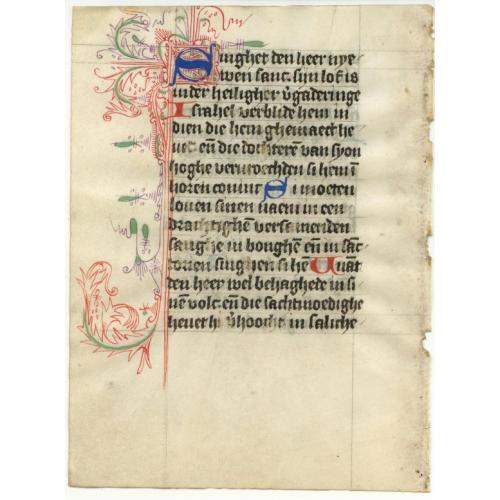 Singhet den heer nye
wen sanc. sijn lof is
in der heiligher v̄gaderinge
Israhel verblide hem in
dien die hem ghemaect he
uet en̄ die dochteren van syon
hoghe vervroechden si hem ī
horen coninc Si moeten
loven sinen naem in een
drachtighē versamenden
sanghe in bonghē en̄ in sāc
toren singhen si hē Want
den heer wel behaghede in si
nē volc. en̄ die sachtmoedighe
hevet hi v̄hoocht in saliche